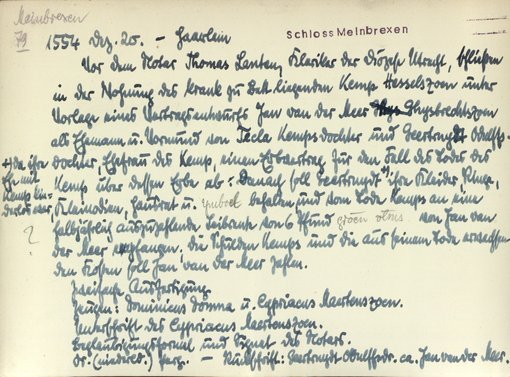 Meinbrexen
79
Schloss Meinbrexen
1554 Dez. 20. – Haarlem
Vor dem Notar Thomas Lanten, Kleriker der Diözese Utrecht, schließen
in der Wohnung des krank zu Bett liegenden Kemp Hesselszoen unter
Vorlage eines Vertragsentwurfs Jan van der Meer Ghysbrechtszoen
als Ehemann u. Vormund von Tecla Kempsdochter und Geertruydt Odolffs-
dochter, Ehefrau des Kemp, einen Erbvertrag für den Fall des Todes des
Kemp über dessen Erbe ab: Danach soll Geertruydt +) ihre Kleider, Ringe,
Kleinodien, Hausrat u. behalten und vom Tode Kemps an eine
halbjährlich auszuzahlende Leibrente von 6 Pfund von Jan van
der Meer empfangen. Die Schulden Kemps und die aus seinem Tode erwachsen-
den Kosten soll Jan van der Meer zahlen.
+) da ihre
Ehe mit
Kemp kin-
derlos war,
?
Zweifache Ausfertigung.
Zeugen: Dominicus Domna u. Cypriacus Maertenszoen.
Unterschrift des Cypriacus Maertenszoen.
Beglaubigungsformel und Signet des Notars.
Or. (niederl.) Perg. – Rückschrift: Geertruydt Odulffsdr. ca. Jan van der Meer.